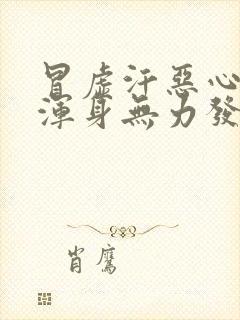 冒虚汗恶心
渾身無力發
肖鷹